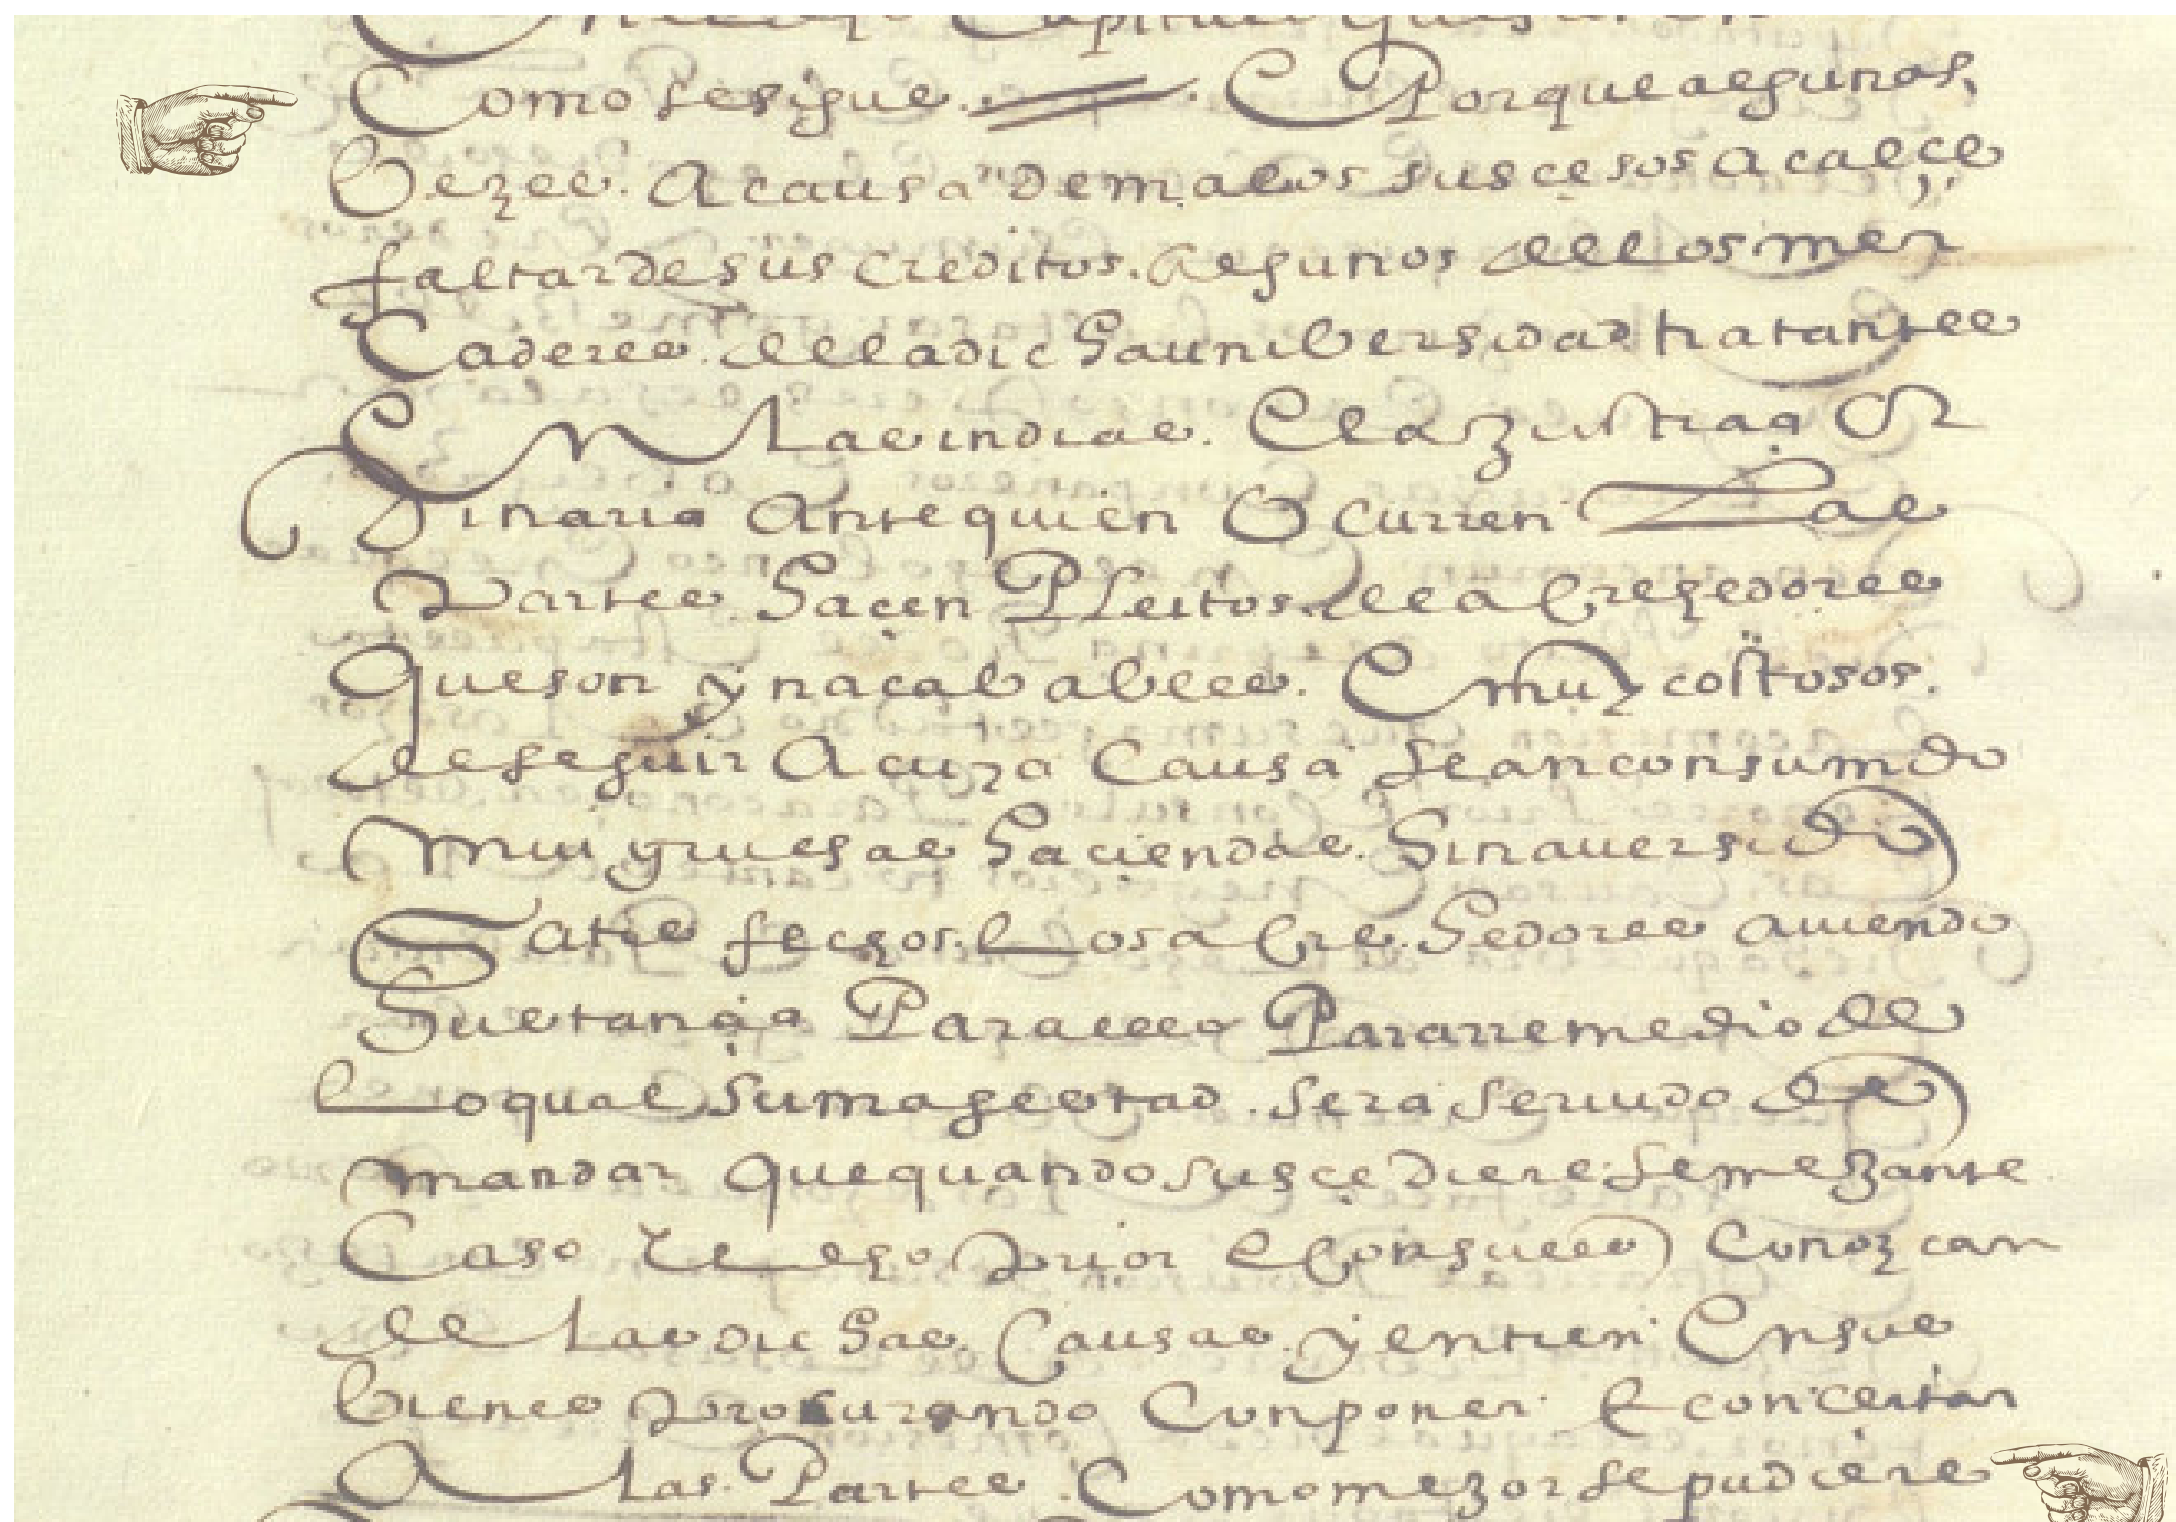 Como se sigue. E Porque algunas
bezes. A causa de malos suscesos acaesce
faltar de sus creditos. algunos de los mer
Caderes. de la dicha unibersidad tratantes
En las indias. E la Justiçia Or
dinaria Ante quien Ocurren Las
Partes Hacen PLeitos. de acreçedores
Que son ynacabables. E muy costosos.
de seguir A cuya Causa se an consumido
mui gruesas Haciendas. Sin aver sido
Satisfechos. Los acrehedores aviendo
Sustançia Para ello Para rremedio de
Lo qual su magestad. sera servido de
mandar que quando suscediere semejante
Caso el dho Prior e Consules Conozcan
de Las dichas. Causas. y entren En sus
bienes Procurando Conponer E concertar
A las. Partes. Como mejor se pudiere